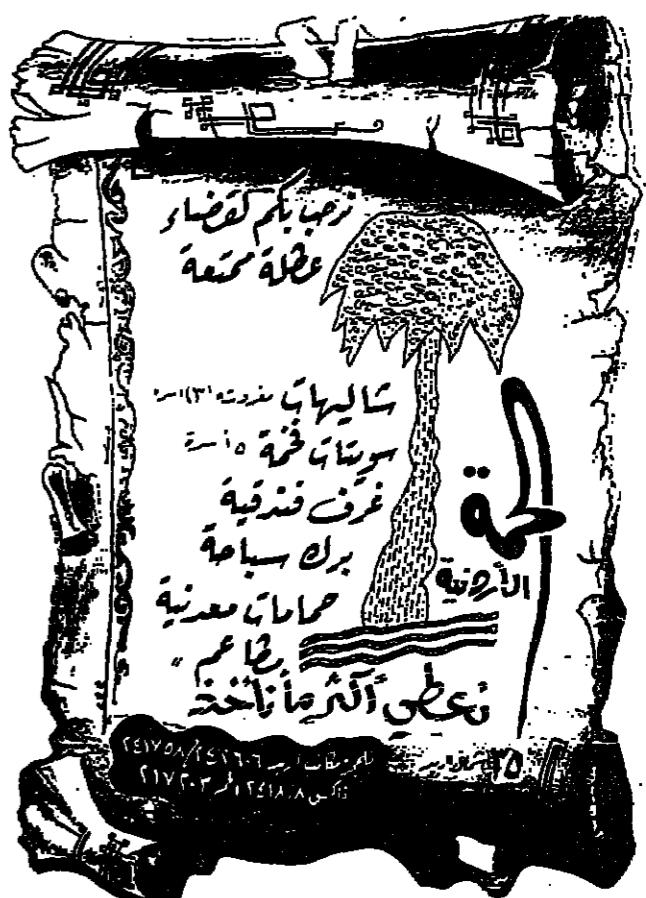 نرحب بكم لقضاء
عطلة ممتعة
شاليهات مفروشة (٣) اسرة
سويتات فخمة ٥ أسرة
غرف فندقية
برك سباحة
حمامات معدنية
مطاعم
الحمة
الأردنية
نعطي أكثر مما نأخذ
اربد ٢٤٢٦٠٦/٢٤١٧٥٨
فاكس ٢٤١٨٠٨ ٢١٧٢٠٣